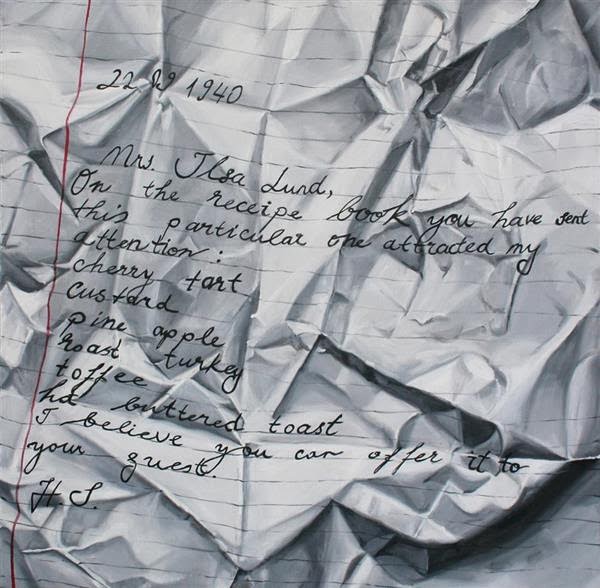 22 1940
Mrs. Ilsa Lund,
On the receipe book you have sent
this particular one attracted my
attention:
cherry tart
custard
pine apple
roast turkey
toffee
hd buttered toast
I believe you can offer it to
your guest.
H. S.